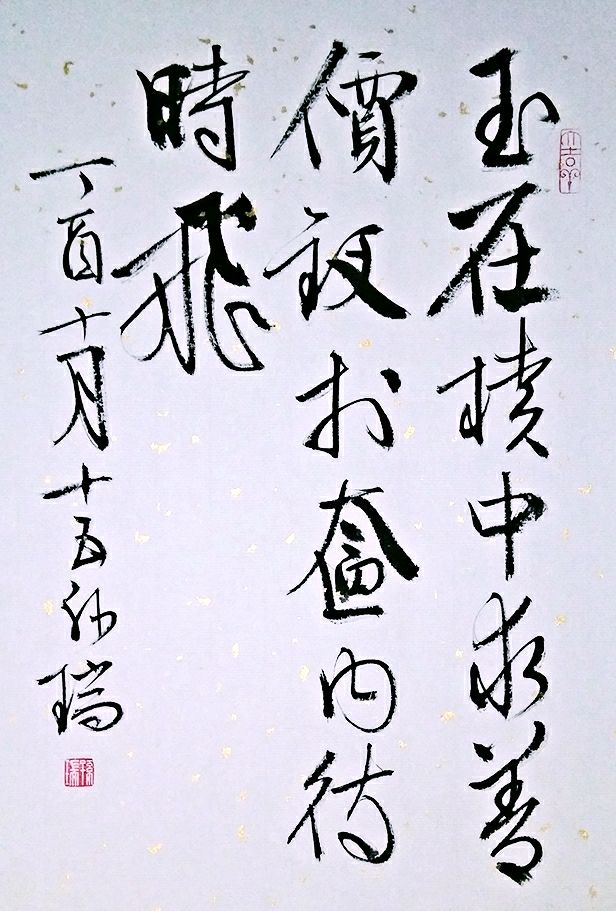 玉在椟中求善
價釵於奩內待
時飛
丁酉十月十五孙瑞